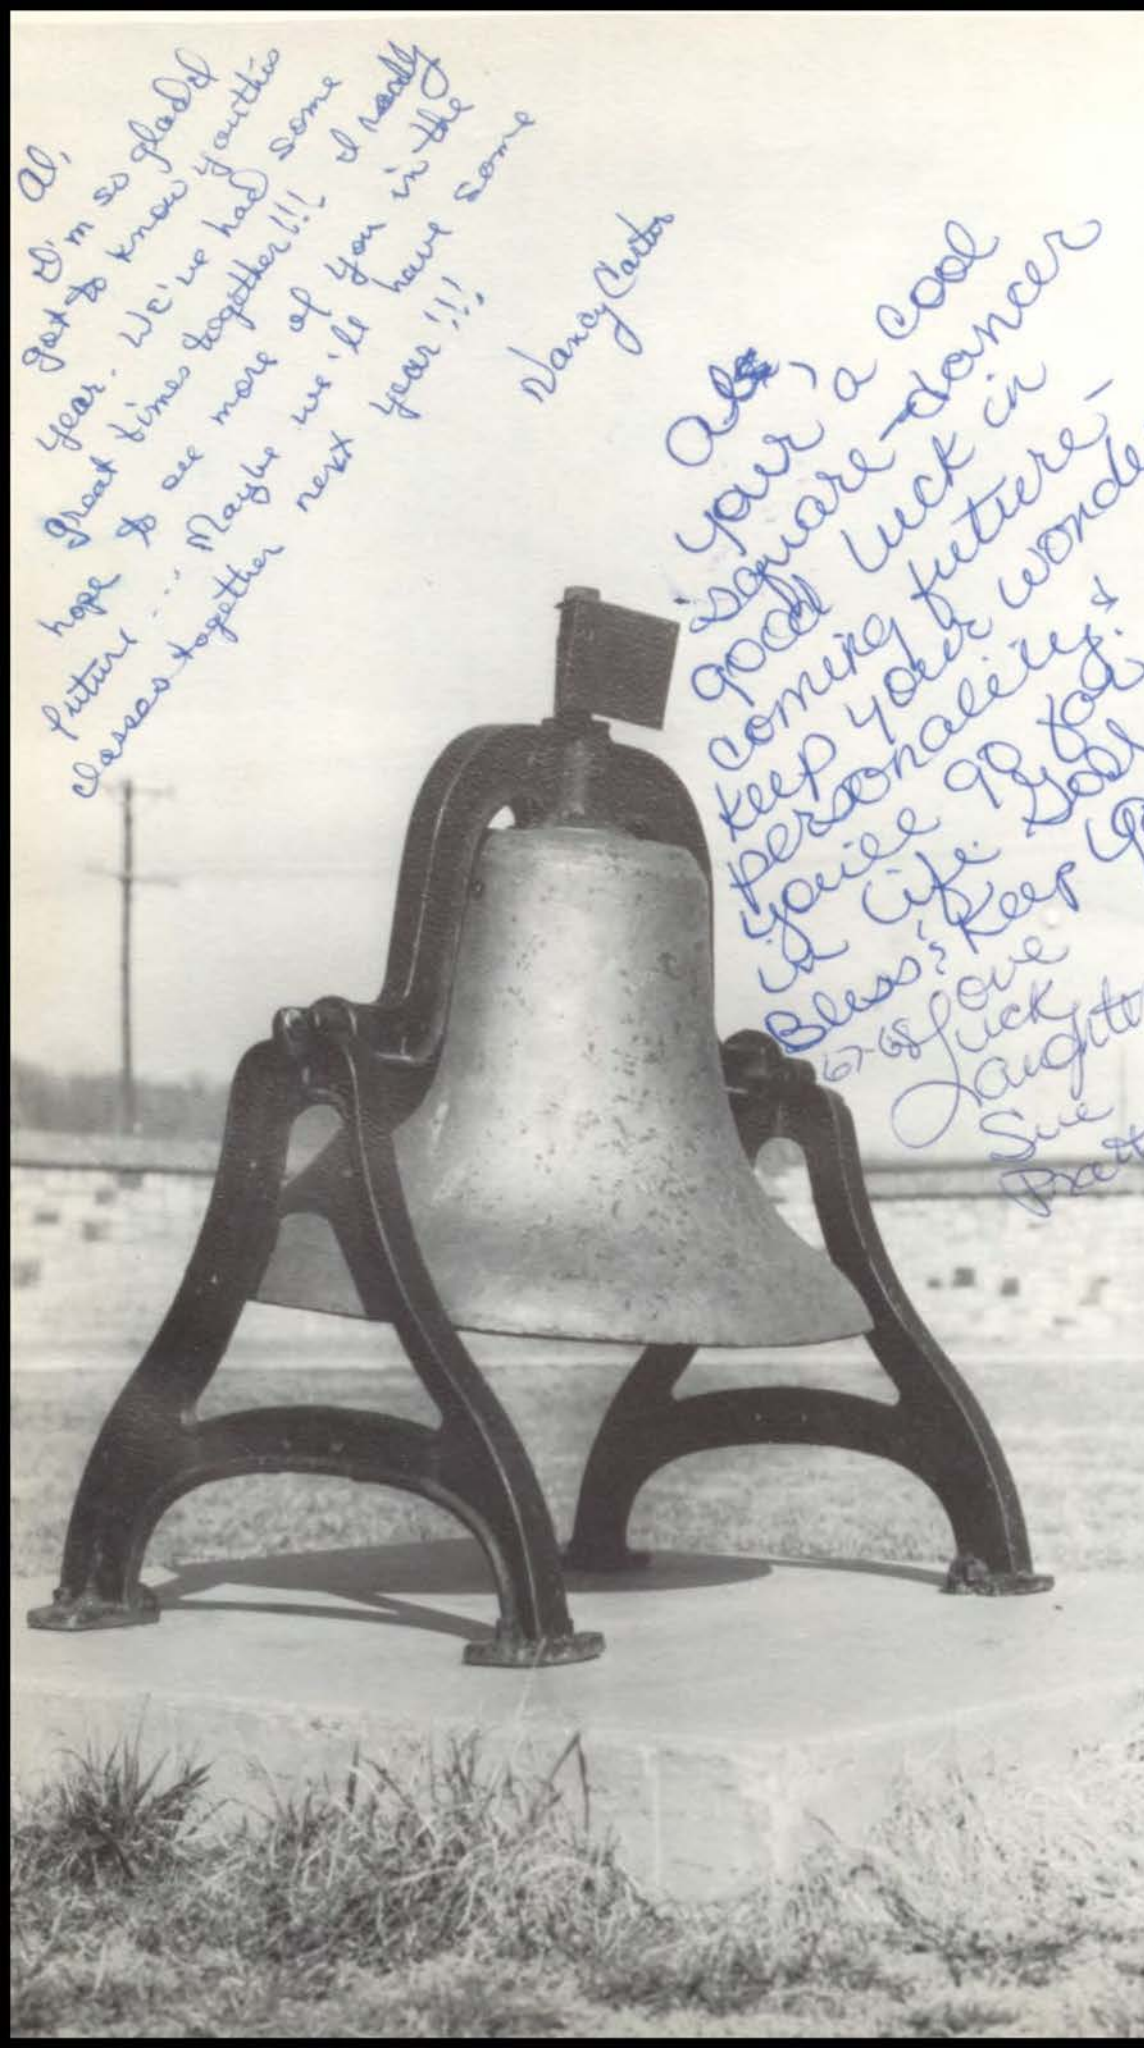 Al,
I'm so glad I
got to know you this
year. We've had some
great times together!!! I really
hope to see more of you in the
future... Maybe we'll have some
classes together next year!!!
Nancy Carter
Al,
your a cool
square-dancer
good luck in
coming future-
keep your wonde
personality &
youill go far
in life. God
Bless & Keep
67-68 Love
Luck
Laughte
Sue
Pratt